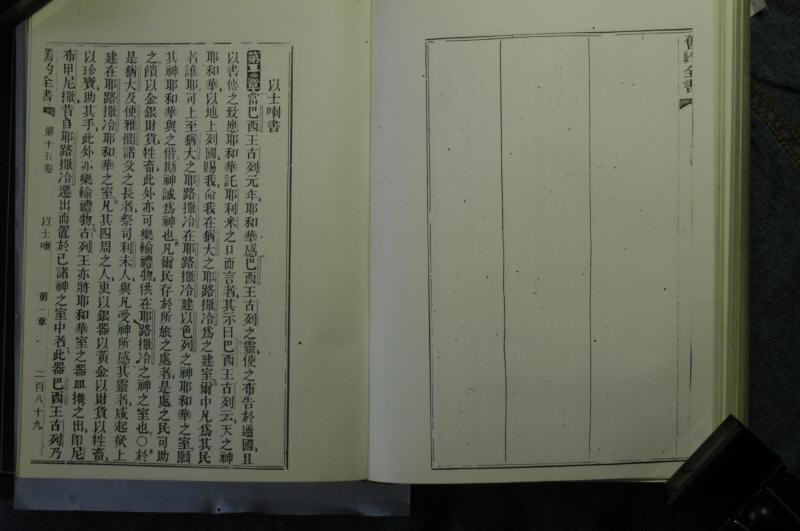 舊約全書
以士喇書
第一章當巴西王古列元年、耶和華感巴西王古列之靈、使之布告於通國、且
以書傳之、致應耶和華託耶利米之口而言者、其示曰巴西王古列云、天之神
耶和華、以地上列國賜我、命我在猶大之耶路撒冷爲之建室、爾中凡爲其民
者誰耶、可上至猶大之耶路撒冷、在耶路撒冷建以色列之神耶和華之室、願
其神耶和華與之偕、斯神誠爲神也、凡爾民存於所旅之處者、是處之民可助
之、饋以金銀財貨牲畜、此外亦可樂輸禮物、供在耶路撒冷之神之室也、〇於
是猶大及便雅憫諸父之長者、祭司利未人、與凡受神所感其靈者、咸起欲上
建在耶路撒冷耶和華之室、凡其四周之人、更以銀器以黃金以財貨以牲畜、
以珍寶助其手、此外亦樂輸禮物、古列王亦將耶和華室之器皿攜之出、卽尼
布甲尼撒昔自耶路撒冷遷出、而置於己諸神之室中者、此器巴西王古列乃
舊約全書 第十五卷 以士喇 第一章 二百八十九